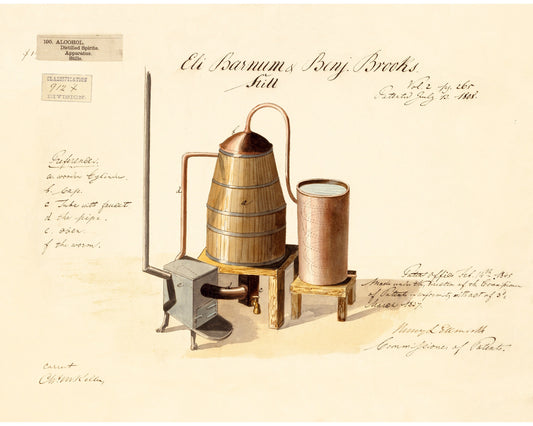 190. ALCOHOL.
Distilled Spirits.
Apparatus.
Stills.
CLASSIFICATION
912 +
DIVISION.
Eli Barnum & Benj. Brooks
Still
Vol. 2 pg. 265
Patented July 13. 1808.
References.
a. wooden Cylinder.
b. Cap.
c Tube with faucet
d the pipe.
e. oven.
f the worm.
d
a
Patent Office Feb. 14th 1845
Made under the direction of the Commissioner
of Patents in conformity with act of 3d
March 1837.
Henry L Ellsworth
Commissioner of Patents.
correct